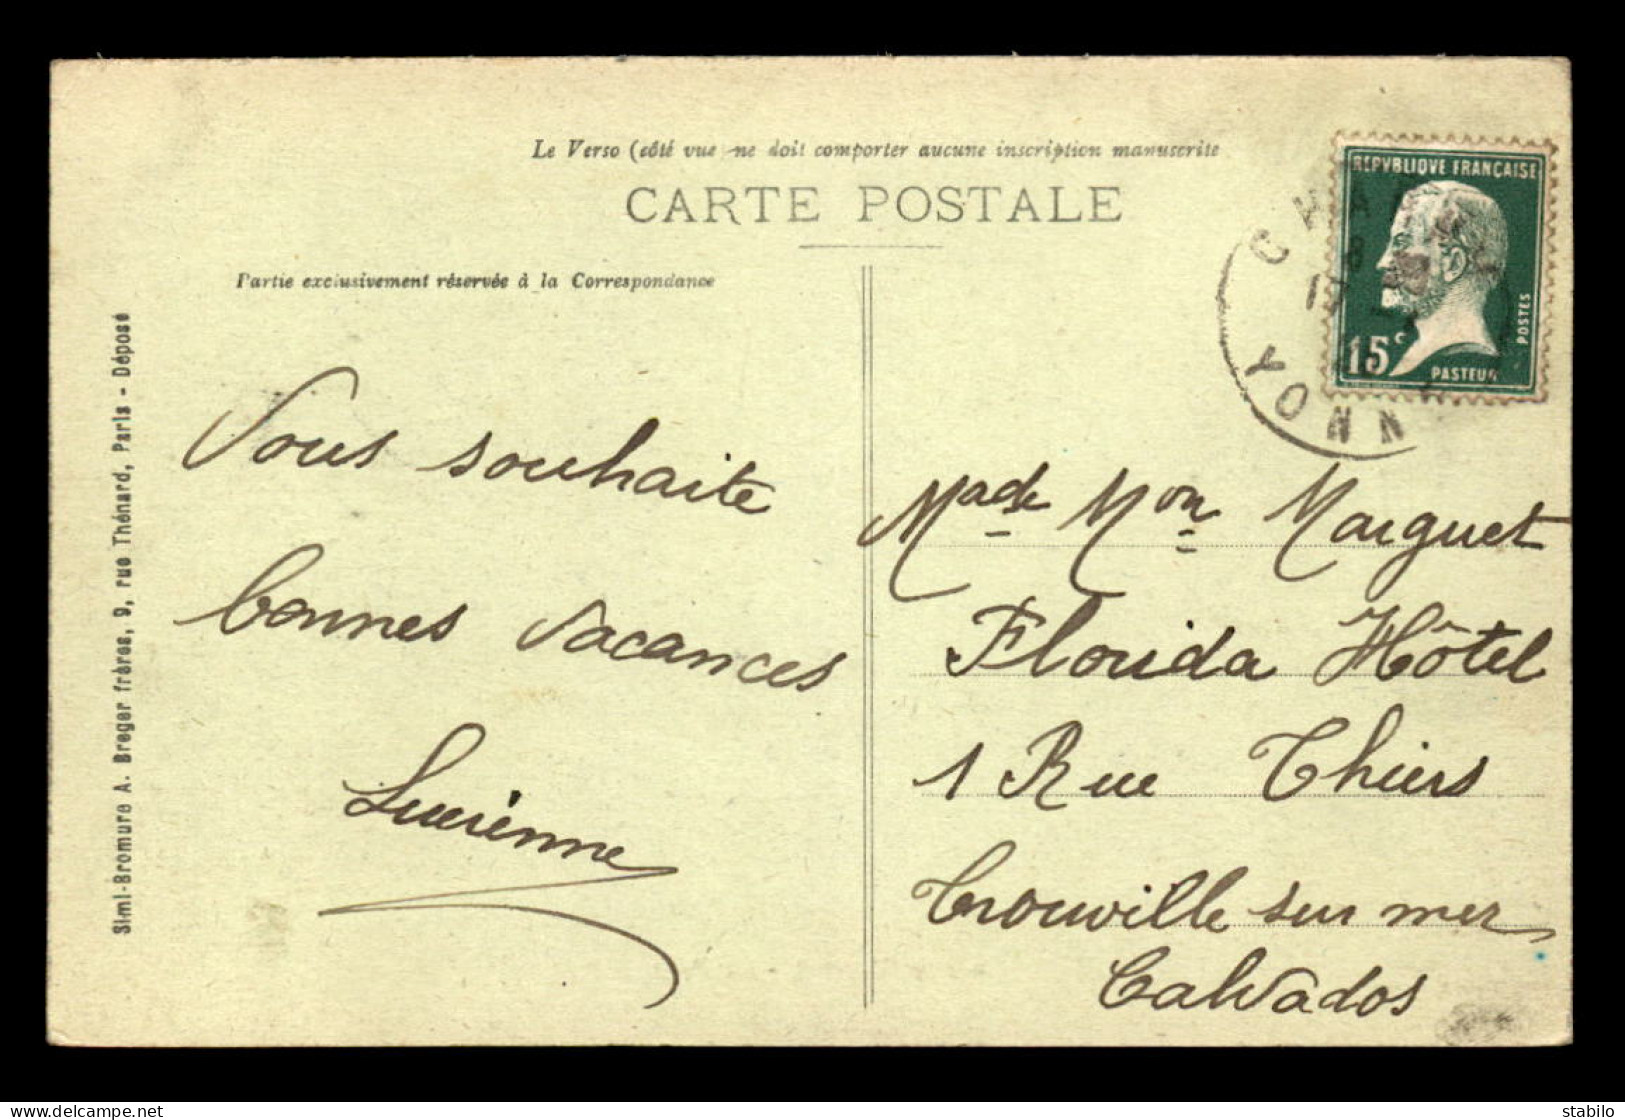 Le Verso (côté vue ne doit comporter aucune inscription manuscrite
CARTE POSTALE
Partie exclusivement réservée à la Correspondance
REPVBLIQVE FRANÇAISE
15c
POSTES
PASTEUR
YONN
Simi-Bromure A. Breger frères, 9, rue Thénard, Paris - Déposé
Vous souhaite
bonnes vacances
Lucienne
Made Mon Marguet
Florida Hôtel
1 Rue Thiers
Trouville sur mer
Calvados
stabilo